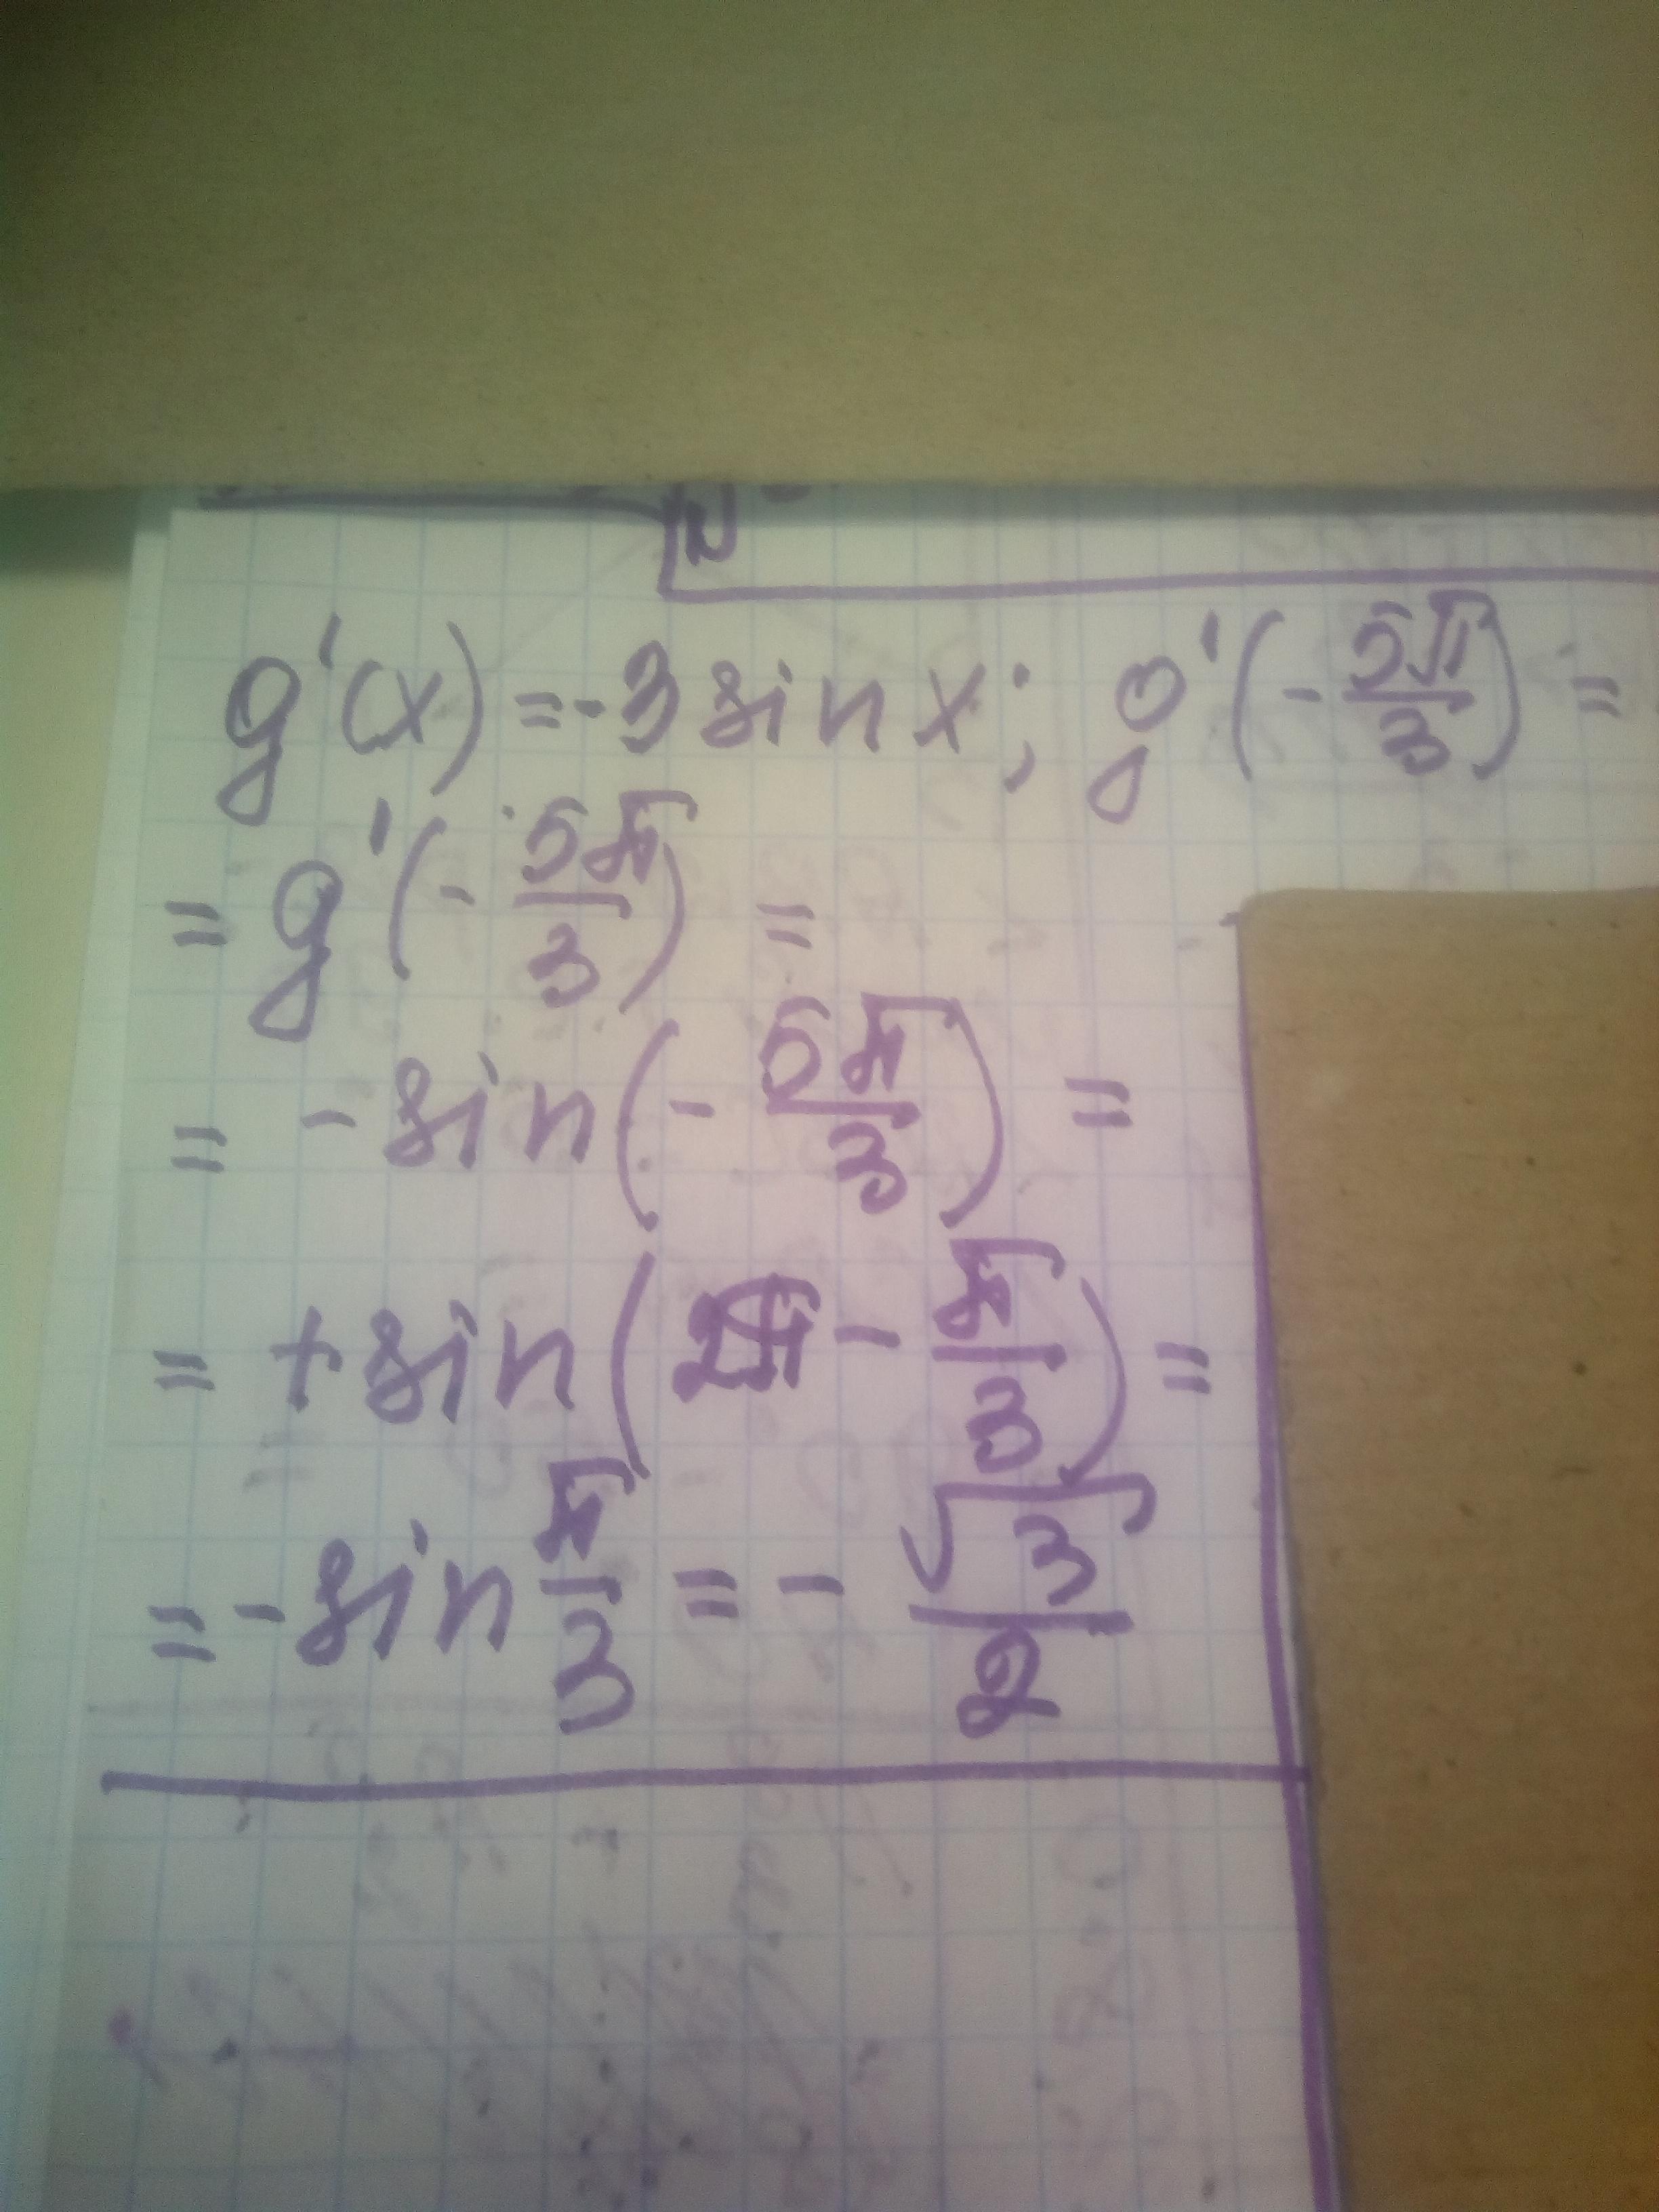 g'(x) = -3 sin x; g'(-5π/3) =
= g'(-5π/3) =
= - sin(-5π/3) =
= + sin(2π - π/3) =
= - sin π/3 = - √3/2